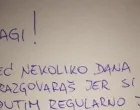 AGI!
EĆ NEKOLIKO DANA
RAZGOVARAŠ JER SI
UTIM REGULARNO